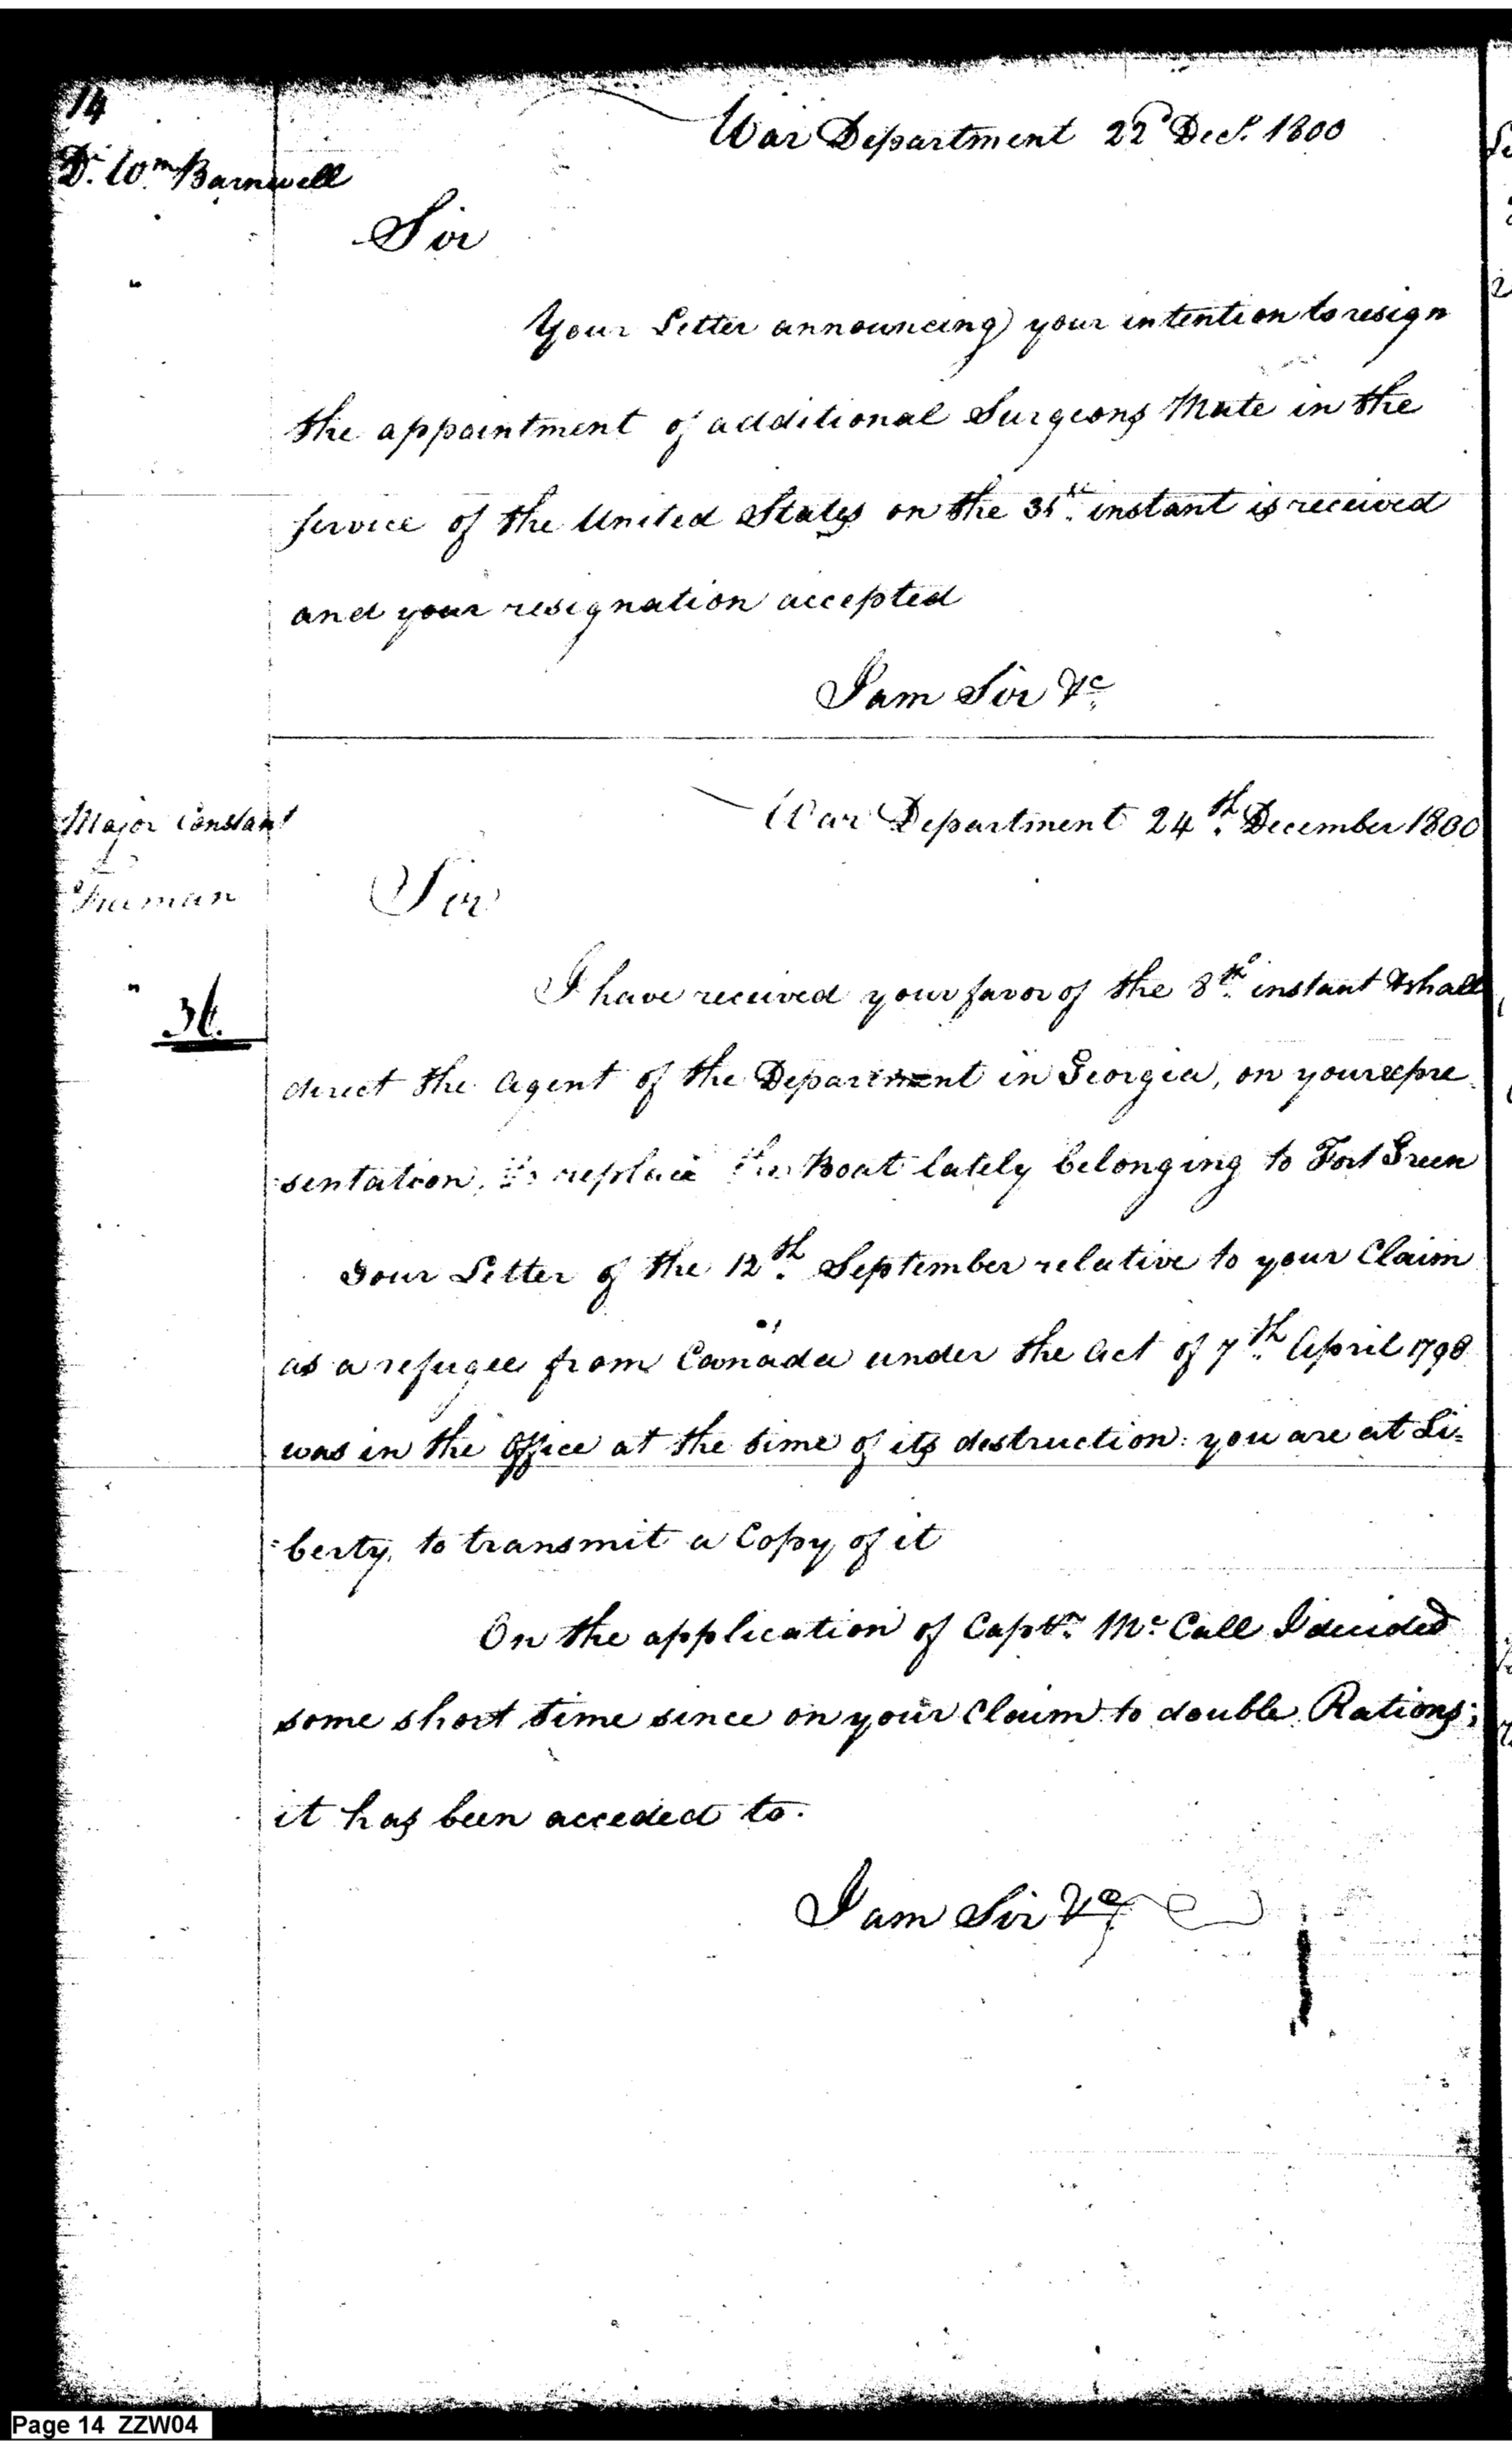 14
War Department 22d Decr. 1800
Dr. Wm Barnwell
Sir
Your Letter announcing your intention to resign
the appointment of additional Surgeons Mate in the
service of the United States on the 31st. instant is received
and your resignation accepted
I am Sir &c.
War Department 24th. December 1800
Major Constant
Freeman
Sir
I have received your favor of the 8th. instant & shall
36.
direct the Agent of the Department in Georgia, on your repre
sentation, to replace the Boat lately belonging to Fort Green
Your Letter of the 12th. September relative to your Claim
as a refugee from Canada under the Act of 7th. April 1798
was in the Office at the time of its destruction: you are at Li=
=berty, to transmit a Copy of it
On the application of Captn. Mc. Call I decided
some short time since on your Claim to double Rations;
it has been acceded to.
I am Sir &c
Page 14 ZZW04